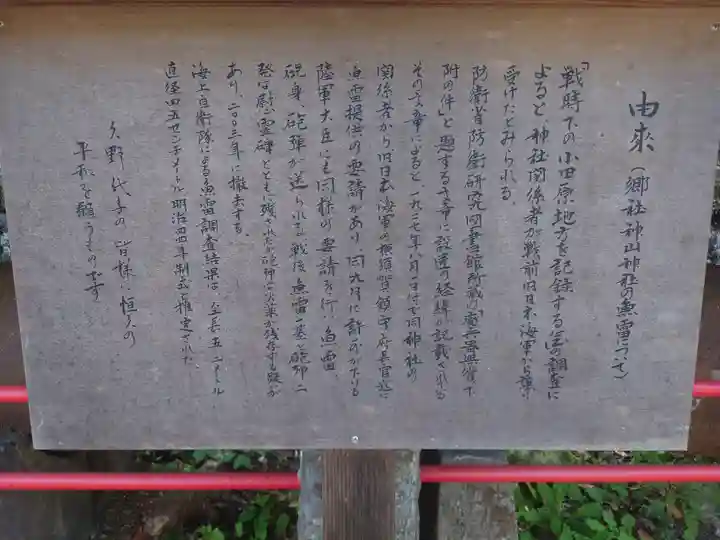 由来(郷社神山神社の魚雷について)
「戦時下の小田原地方を記録する会」の調査に
よると、神社関係者が戦前旧日本海軍から譲り
受けたとみられる。
防衛省防衛研究図書館所蔵の「廃兵器無償下
附の件」と題する文書に設置の経緯が記載されている
その文書によると、一九二七年八月一日付で同神社の
関係者から旧日本海軍の横須賀鎮守府長官宛に
魚雷提供の要請があり、同九月に許可が下りている
陸軍大臣にも同様の要請を行い魚雷
砲身、砲弾が送られて戦後、魚雷一基と砲弾二
発は慰霊碑とともに残されたが砲弾は火薬が残存する疑いが
あり、二〇〇三年に撤去する。
海上自衛隊による魚雷調査結果は、全長五・二メートル
直径四五センチメートル明治四四年制式と推定された
久野一代子の皆様、恒久の
平和を願うものです